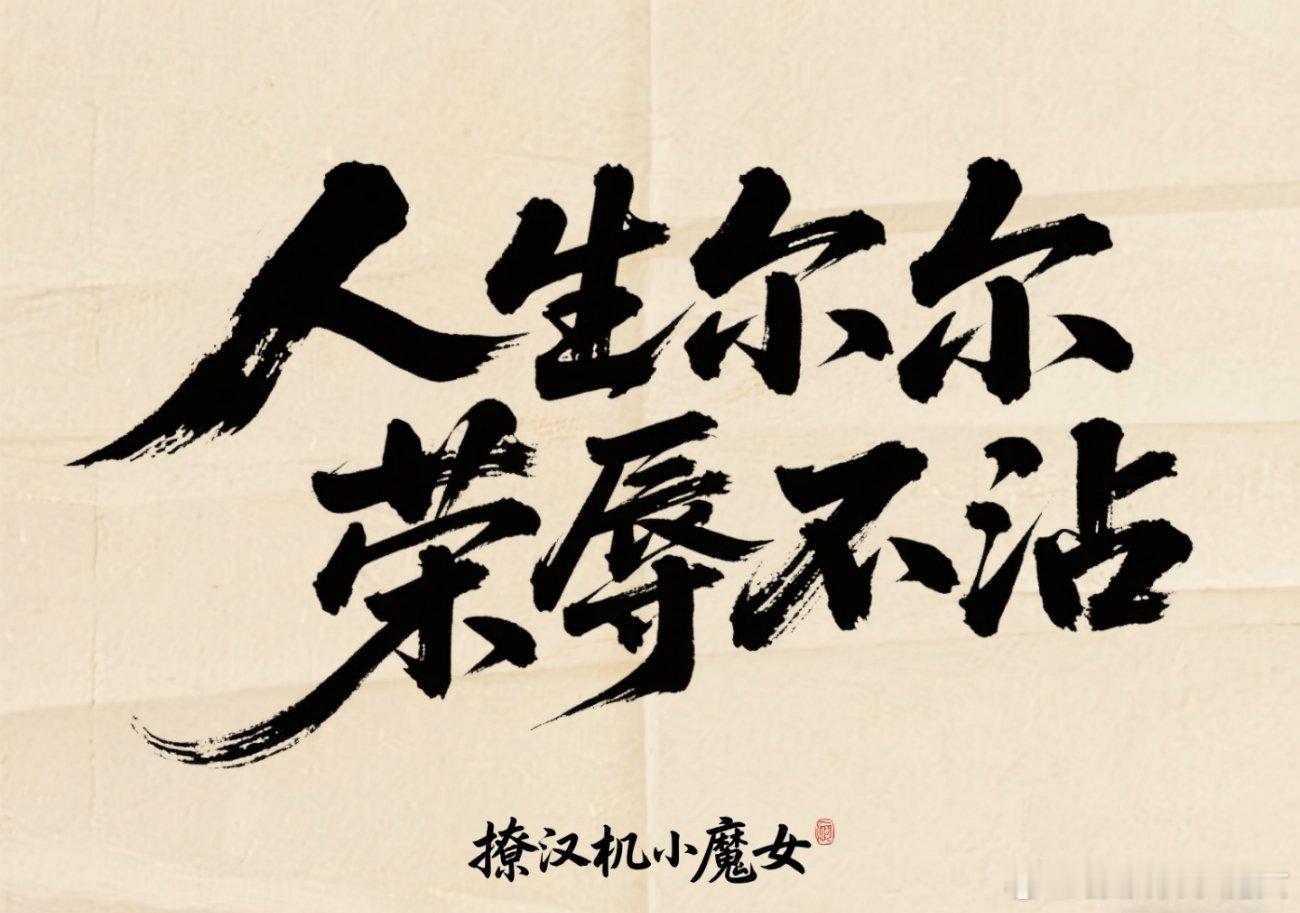 人生尔尔
荣辱不沾
撩汉机小魔女